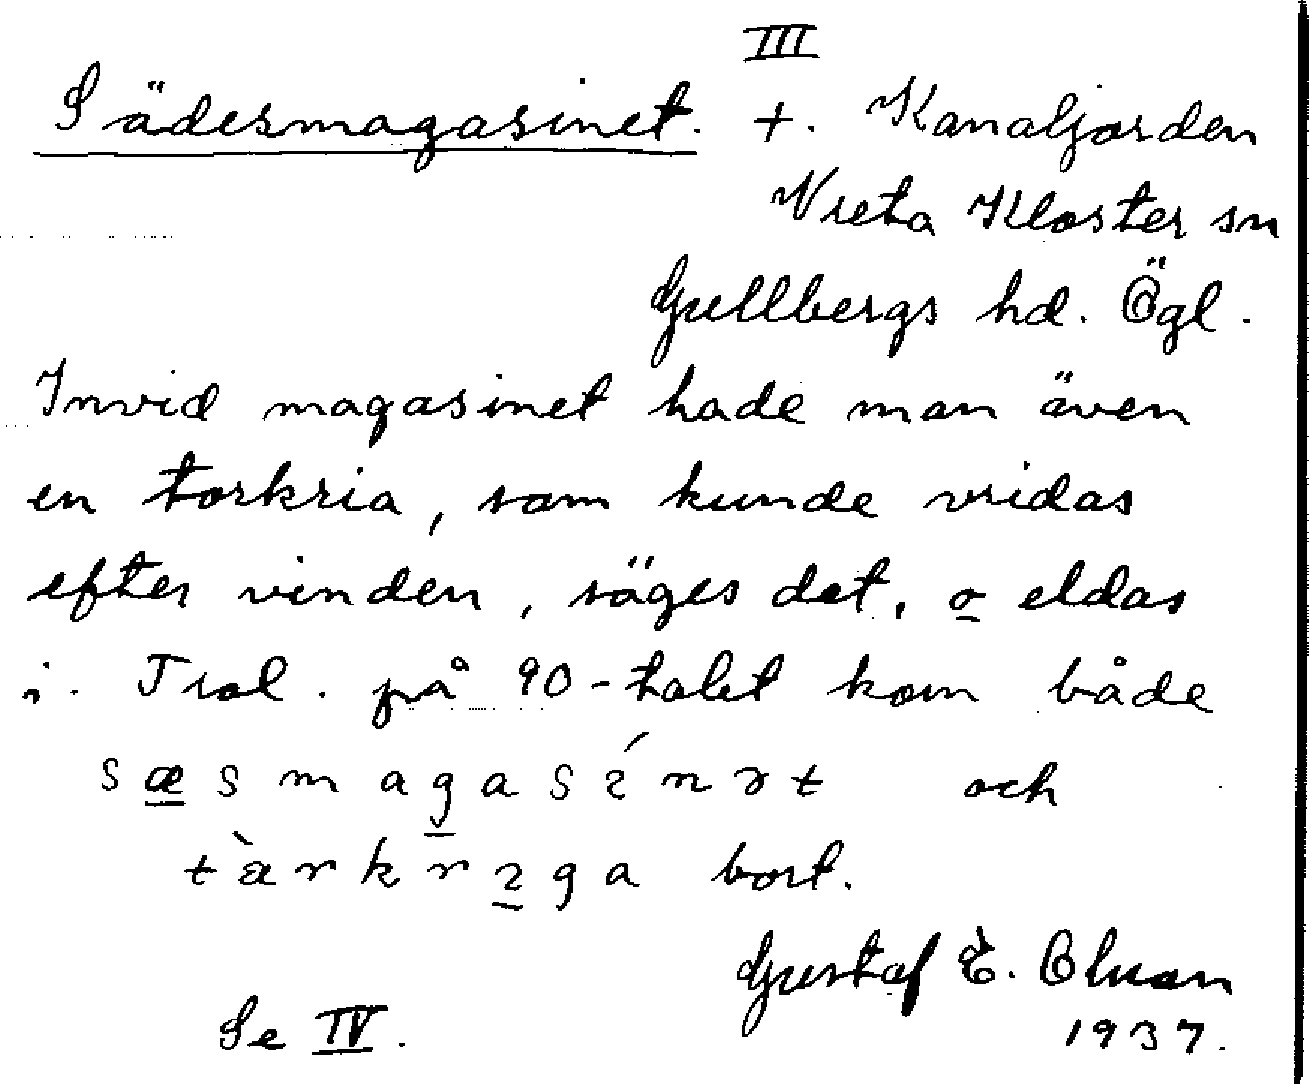 III
Sädesmagasinet. +. Kanaljorden
Vreta Kloster sn
Gullbergs hd. Ögl.
Invid magasinet hade man även
en torkria, som kunde vridas
efter vinden, säges det, o eldas
i. Trol. på 90-talet kom både
sæsmagasínət och
tàrkrıga bort.
Gustaf E. Olson
Se IV. 1937.